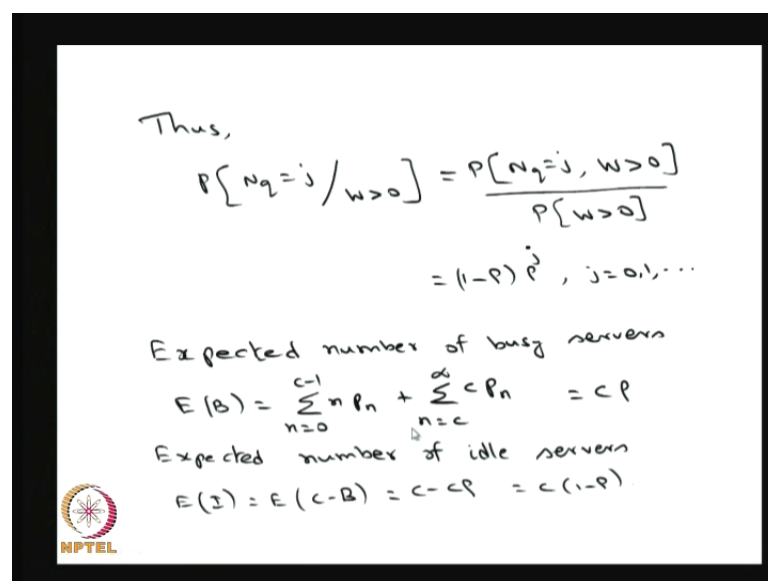 Thus,
P[Nq=j/W>0] = P[Nq=j, W>0] / P[W>0]
= (1-ρ) ρ^j , j=0,1,...
Expected number of busy servers
E(B) = Σ_{n=0}^{c-1} n Pn + Σ_{n=c}^{∞} c Pn = cρ
Expected number of idle servers
E(I) = E(c-B) = c-cρ = c(1-ρ)
NPTEL